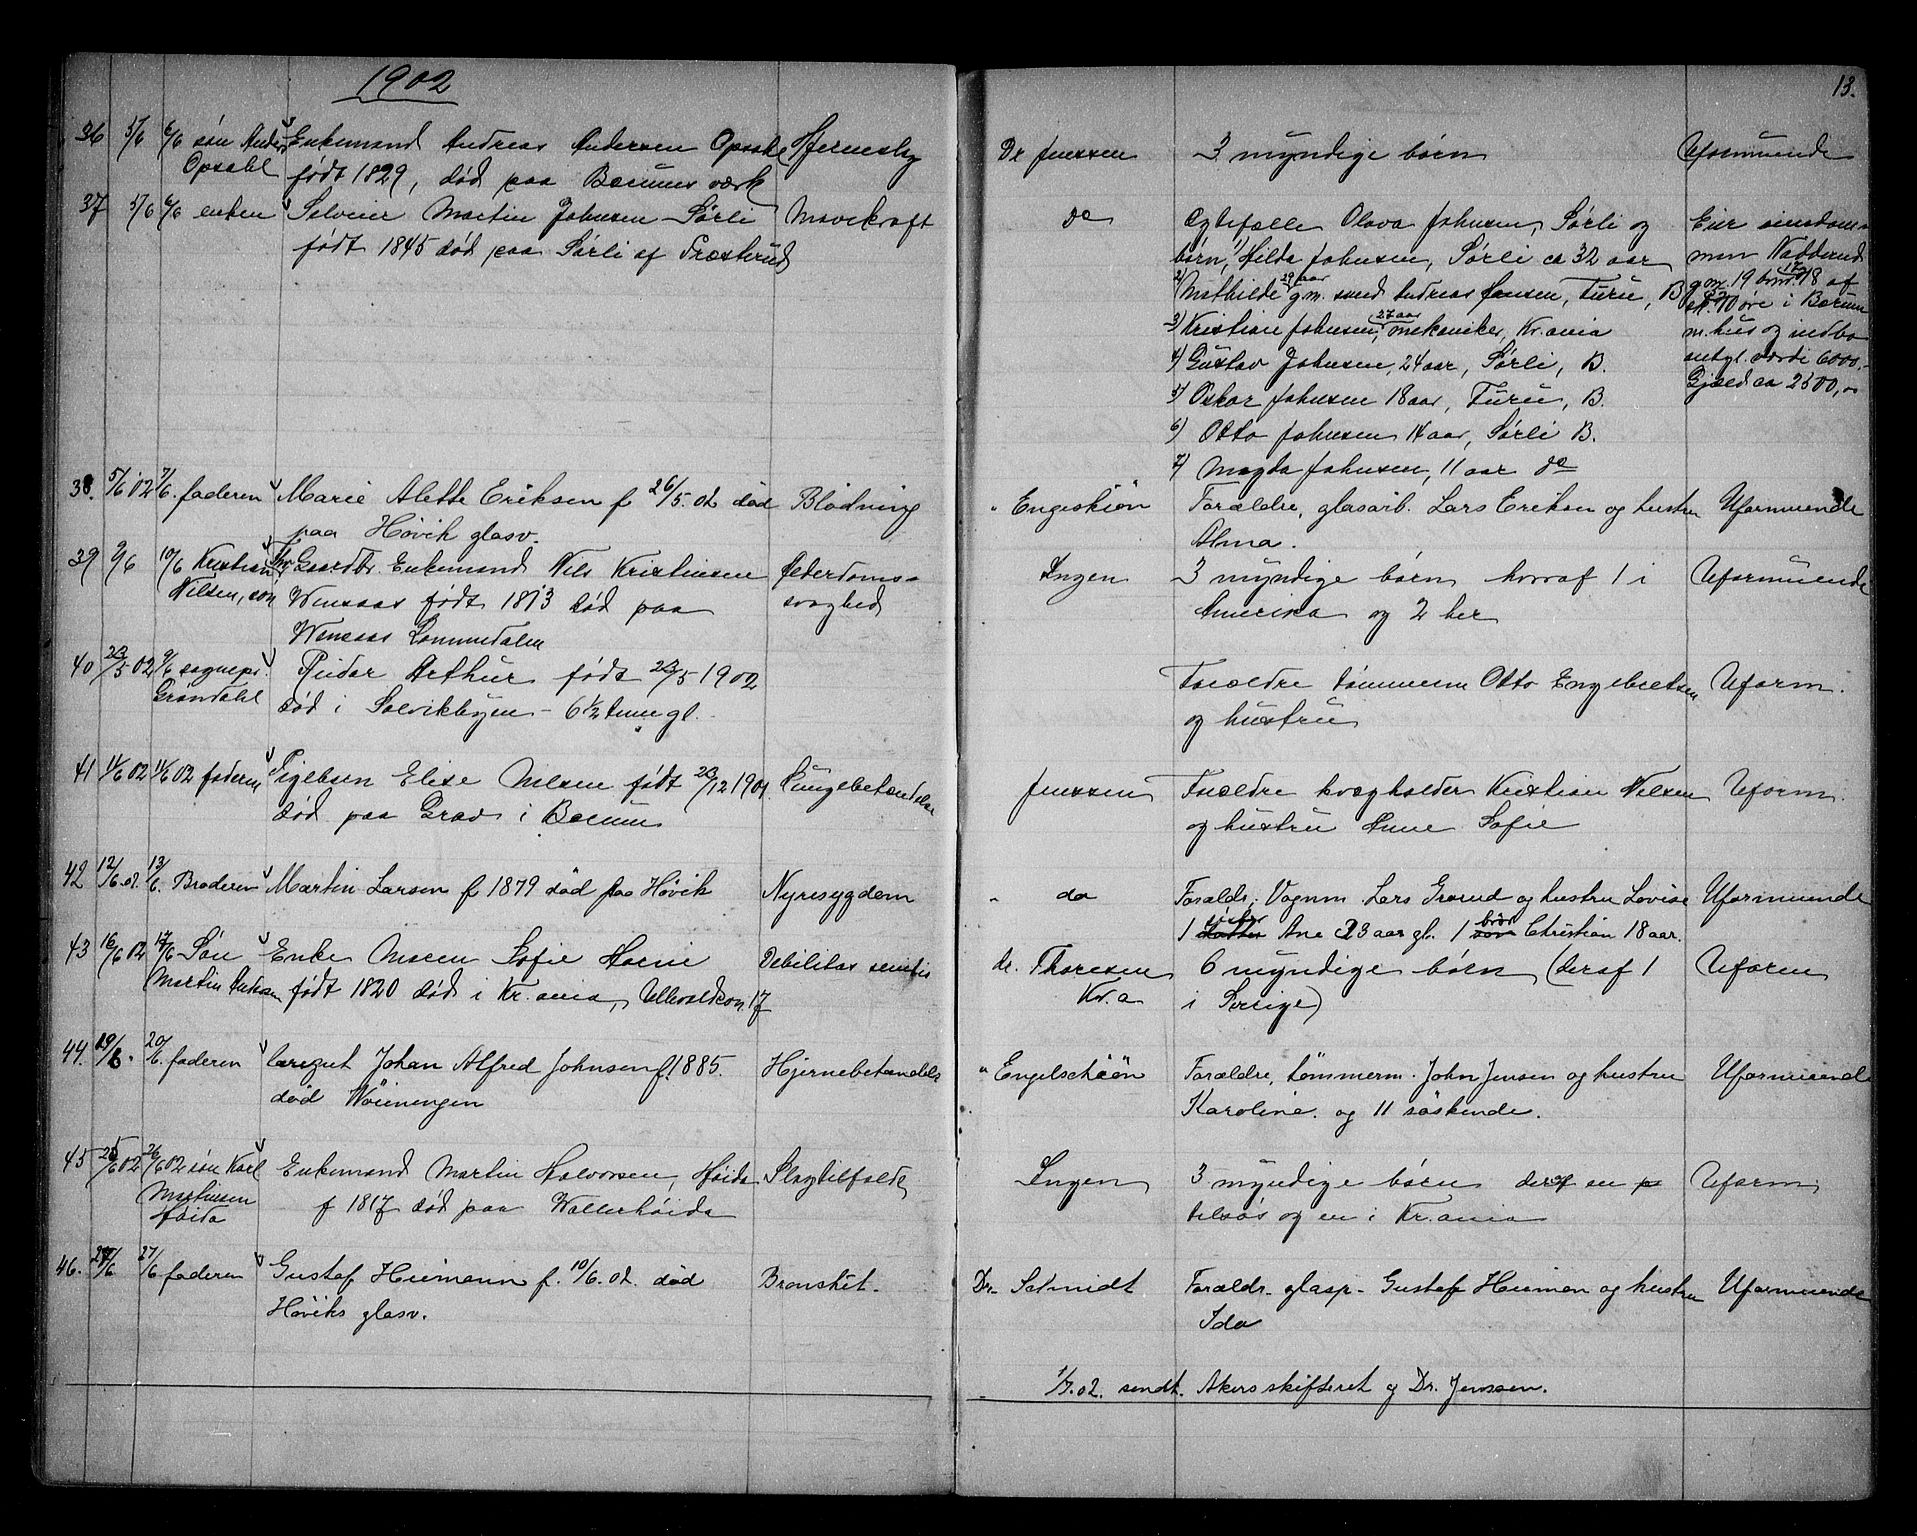 1902
13.
36 5/6 6/6 søn Anders Enkemand Andreas Andersen Opsahl Hjerneslag Dr Jenssen 3 myndige børn Uformuende
Opsahl født 1829, død paa Bærums værk
37 5/6 6/6 enken Selveier Martin Johnsen Sørli Mavekræft do Ægtefælle Olava Johnsen Sørli og Eier eiendom-
født 1845 død paa Sørli af Præsterud børn, 1) Hilda Johnsen, Sørli ca 32 aar men Nadderud
2) Mathilde 29 aar g.m. smed Andreas Hansen, Furu, B. g.no. 19 brno. 18 af
3) Kristian Johnsen, 27 aar mekaniker, Kr.ania øre i Bærum
4) Gustav Johnsen, 24 aar, Sørli, B. m. hus og indbo
5) Oskar Johnsen 18 aar, Furu, B. antgl. værdi 6000,-
6) Otto Johnsen 14 aar, Sørli B. Gjæld ca 2500,-
7) Magda Johnsen, 11 aar do
38. 5/6 02 7/6. faderen Marie Alette Eriksen f 26/5. 02 død Blødning " Engeskiön Forældre, glasarb. Lars Eriksen og hustru Uformuende
paa Høvik glasv. Alma.
39 9/6 10/6 Kristian Gaardbr. Enkemand Nils Kristiansen Alderdoms- Ingen 3 myndige børn hvoraf 1 i Uformuende
Nilsen, søn Wensaas født 1813 død paa svaghed Amerika og 2 her
Wensaas Lommedalen
40 23/5 02 9/6 sognepr. Reidar Arthur født 23/5 1902 Forældre tømmerm Otto Engebretsen Uform.
Grøndahl død i Solvikbugen - 6 1/2 time gl. og hustru
41 11/6 02 11/6 02 faderen Elise Nilsen født 23/12 1901 Lungebetændelse Jenssen Forældre kvægholder Kristian Nilsen Uform.
død paa Grav i Bærum og hustru Anne Sofie
42 12/6.02. 13/6. Broderen Martin Larsen f 1879 død paa Høvik Nyresygdom " do Foraldr. Vognm. Lars Grorud og hustru Lovise Uformuende
1 søster Ane 23 aar gl. 1 bror Christian 18 aar.
43 16/6 02 17/6 Søn Enke Maren Sofie Hornie Debilitas senilis dr. Thoresen 6 myndige børn (deraf 1 Uform
Martin født 1820 død i Kr.ania, Ullevoldsvn. 17 Kr.a i Sverige)
44. 19/6. 20/6. faderen læregut Johan Alfred Johnsen f. 1885. Hjernebetændelse " Engelschiön Forældre, tømmerm. John Jensen og hustru Uformuende
død Wøieneengen Karoline. og 11 søskende.
45 25/6 02 26/6 02 søn Karl Enkemand Martin Halvorsen, Høida Slagtilfælde Ingen 3 myndige børn deraf en Uform.
Martinsen f 1817 død paa Wallerhøida tilsøs og en i Kr.ania
Høida
46. 27/6 27/6 faderen Gustaf Heimann f. 10/6. 02. død Bronskit. Dr. Schmidt Foraldr. glasp. Gustaf Heiman og hustru Uformuende
Høviks glasv. Ida
1/7. 02. sendt. Akers skifteret og Dr. Jenssen.